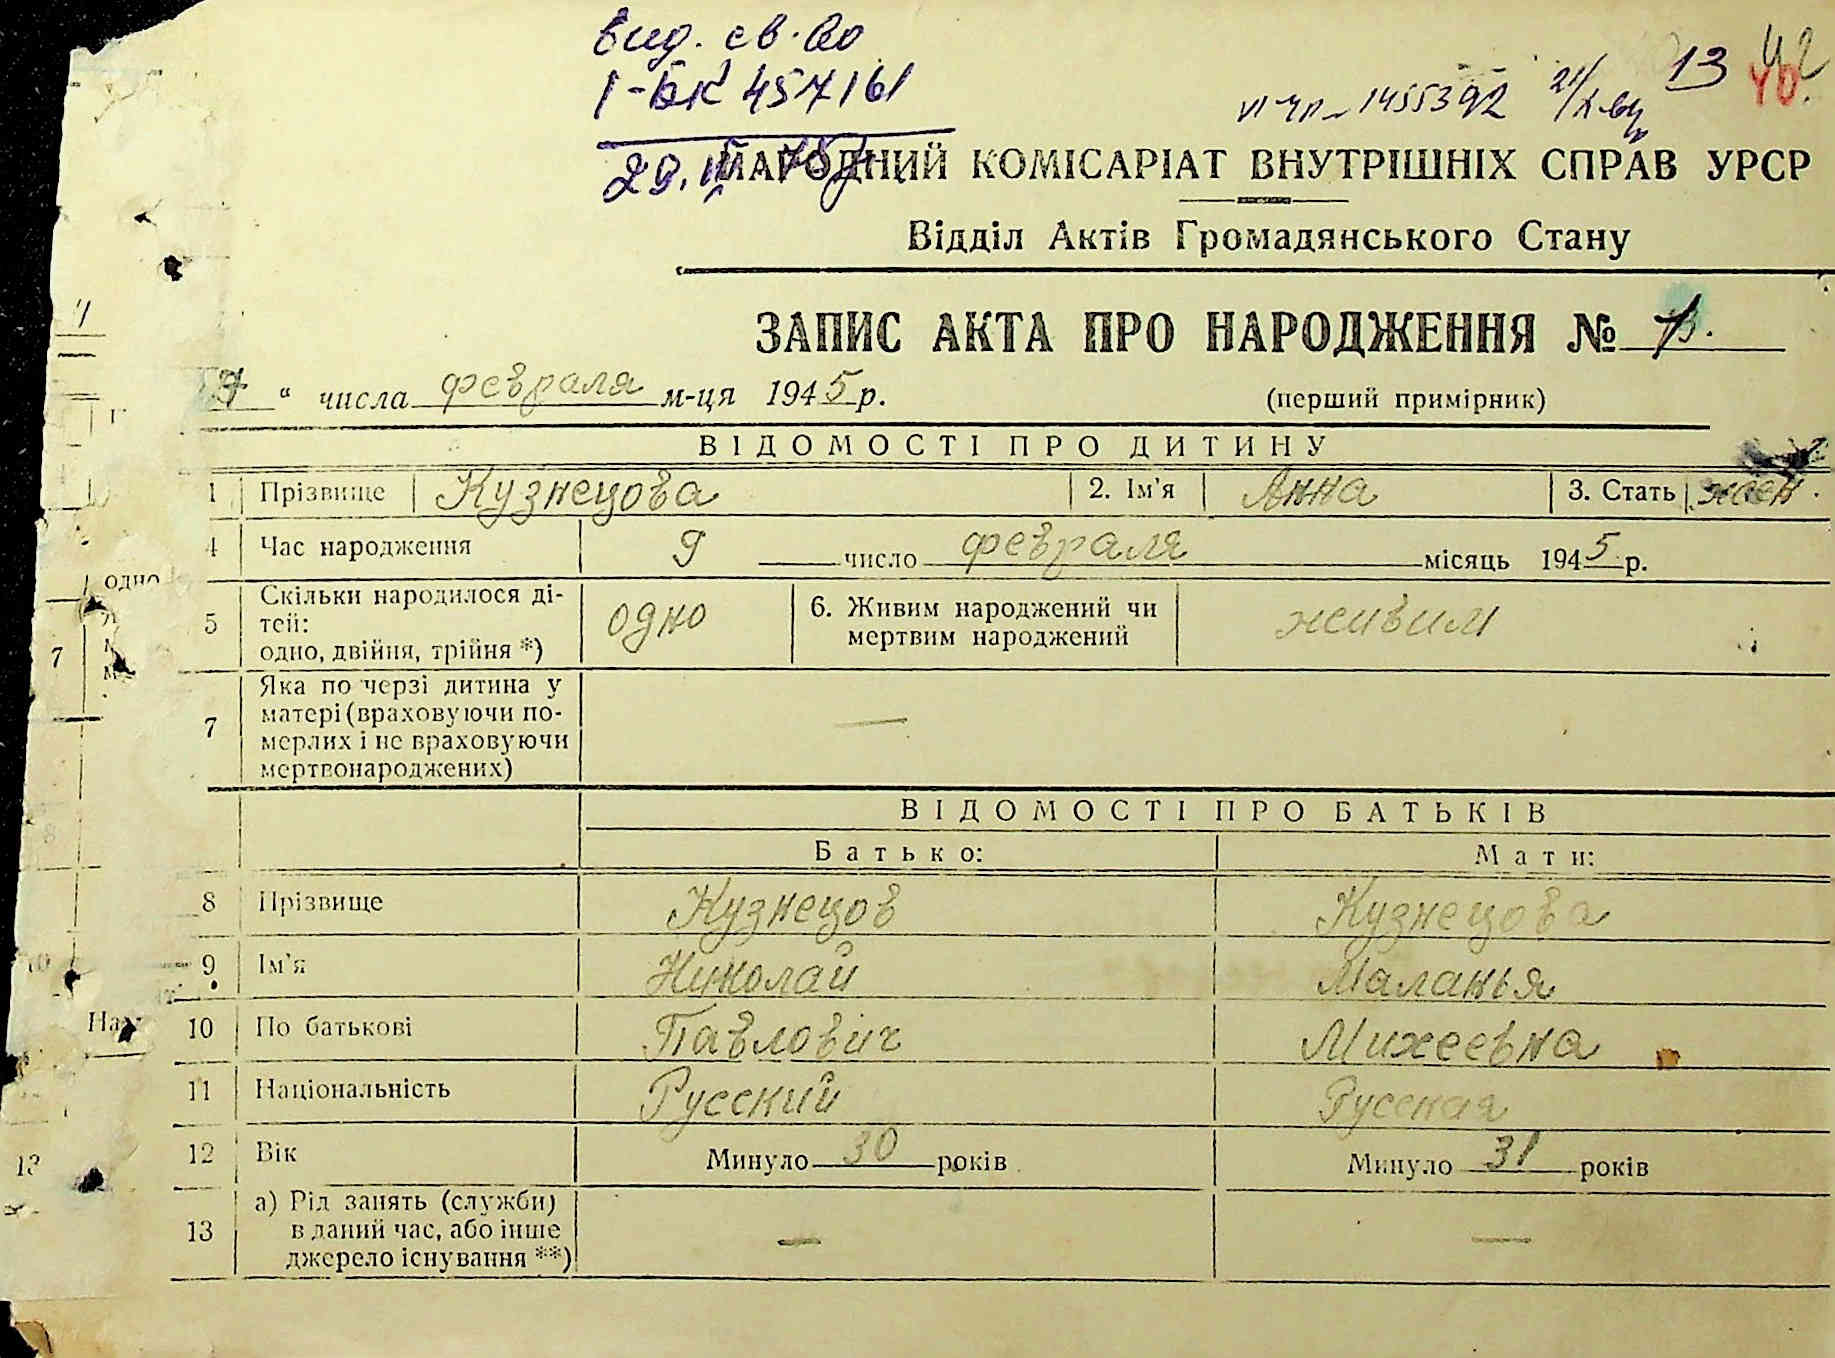 вид. св-во
І-БК 457161
29. 75
VI-УР 1455392 21/X
13
42
40.
НАРОДНИЙ КОМІСАРІАТ ВНУТРІШНІХ СПРАВ УРСР
Відділ Актів Громадянського Стану
ЗАПИС АКТА ПРО НАРОДЖЕННЯ №
" числа февраля м-ця 1945 р. (перший примірник)
ВІДОМОСТІ ПРО ДИТИНУ
1 Прізвище Кузнецова 2. Ім'я Анна 3. Стать жен.
4 Час народження 9 число февраля місяць 1945 р.
5 Скільки народилося ді-
тей:
одно, двійня, трійня *)
одно
6. Живим народжений чи
мертвим народжений
живим
7 Яка по черзі дитина у
матері (враховуючи по-
мерлих і не враховуючи
мертвонароджених)
—
ВІДОМОСТІ ПРО БАТЬКІВ
Батько: Мати:
8 Прізвище Кузнецов Кузнецова
9 Ім'я Николай Маланья
10 По батькові Павлович Михеевна
11 Національність Русский Русская
12 Вік Минуло 30 років Минуло 31 років
13 а) Рід занять (служби)
в даний час, або інше
джерело існування **)
— —
одно
7
10
13